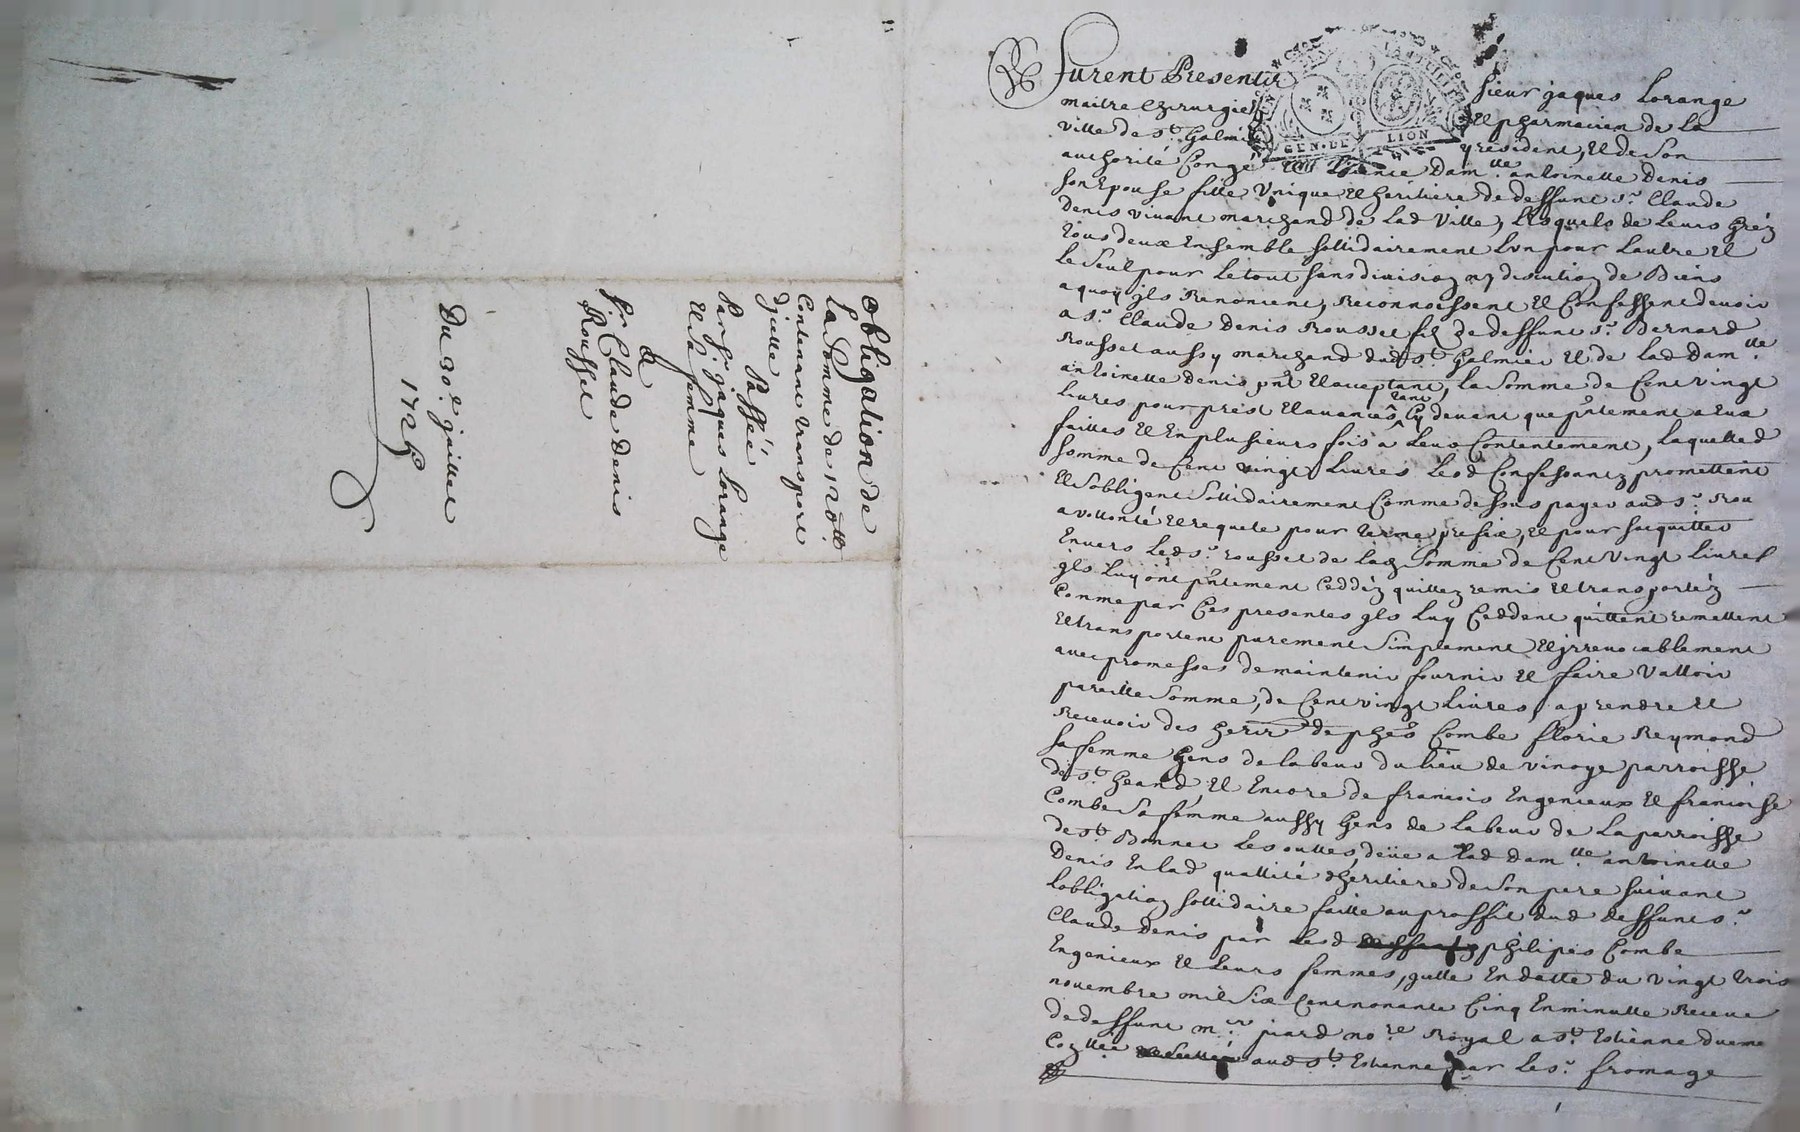 obligation de
La somme de 120ᵗᵗ
Contenant transport
Passée
Par sʳ jaques Lorange
Et sa femme
A
sʳ Claude denis
Rousset
Du 30ᵉ juillet
1725
furent Presents sieur jaques Lorange
maitre chirurgien Et pharmacien de La
ville de sᵗ Galmier y resident, Et de son
authorité Congé Et Licence Damˡˡᵉ antoinette Denis
son Epouse fille Unique Et heritiere de deffunt sʳ Claude
Denis vivant marchand de Lad ville, Lesquels de Leurs gréz
tous deux Ensemble sollidairement Lun pour Lautre Et
Le seul pour Le tout sans division ny discution de Biens
a quoy jls Renoncent, Reconnoissent Et Confessent devoir
a sʳ Claude Denis Rousset fils de deffunt sʳ Bernard
Rousset aussy marchand dud sᵗ Galmier Et de Lad Damˡˡᵉ
antoinette Denis pnt Et acceptant, La somme de Cent vingt
Livres pour prest Et avances tant Cy devant que pntement a Eux
faittes Et En plusieurs fois a Leur Contentement, Laquelled
somme de Cent vingt Livres Lesd Confessantz promettent
Et sobligent sollidairement Comme dessus payer aud sʳ Rou
a vollonté Et requete pour terme prefix, Et pour sacquitter
Envers Led sʳ rousset de Lad somme de Cent vingt Livres
jls Luy ont pntement Ceddéz quittez remis Et transportéz
Comme par Ces presentes jls Luy Ceddent quittent remettent
Et transportent purement simplement Et jrrevocablement
avec promesses de maintenir fournir Et faire valloir
pareille somme, de Cent vingt Livres, a prendre Et
Recevoir des herit de phes Combe florie Reymond
sa femme Gens de labeur du lieu de vinoye parroisse
de sᵗ heand, Et Encore de francois Engenieux Et francoise
Combe sa femme aussy Gens de Labeur de La parroisse
de sᵗ Bonnet Les oulles, deüe a Lad Damˡˡᵉ antoinette
Denis En Lad quallité dheritiere de son pere suivant
Lobligation sollidaire faitte au proffit dud deffunt sʳ
Claude Denis par Lesd philipes Combe
Engenieux Et Leurs femmes, jcelle En datte du vingt trois
novembre mil six Cent nonante Cinq En minutte Receue
de deffunt mʳ piard noʳᵉ Royal a sᵗ Estienne dueme
aud sᵗ Estienne par Le sʳ fromage